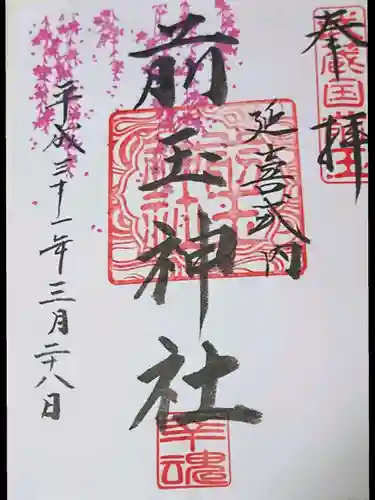 奉拝
武蔵国
延喜式内
前玉神社
幸魂
平成三十一年三月二十八日